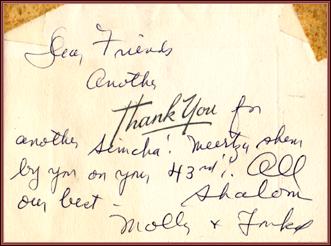 Dear Friends
Another
Thank You for
another Simcha!
by you on your 43rd!. All
our best - Shalom
Molly &